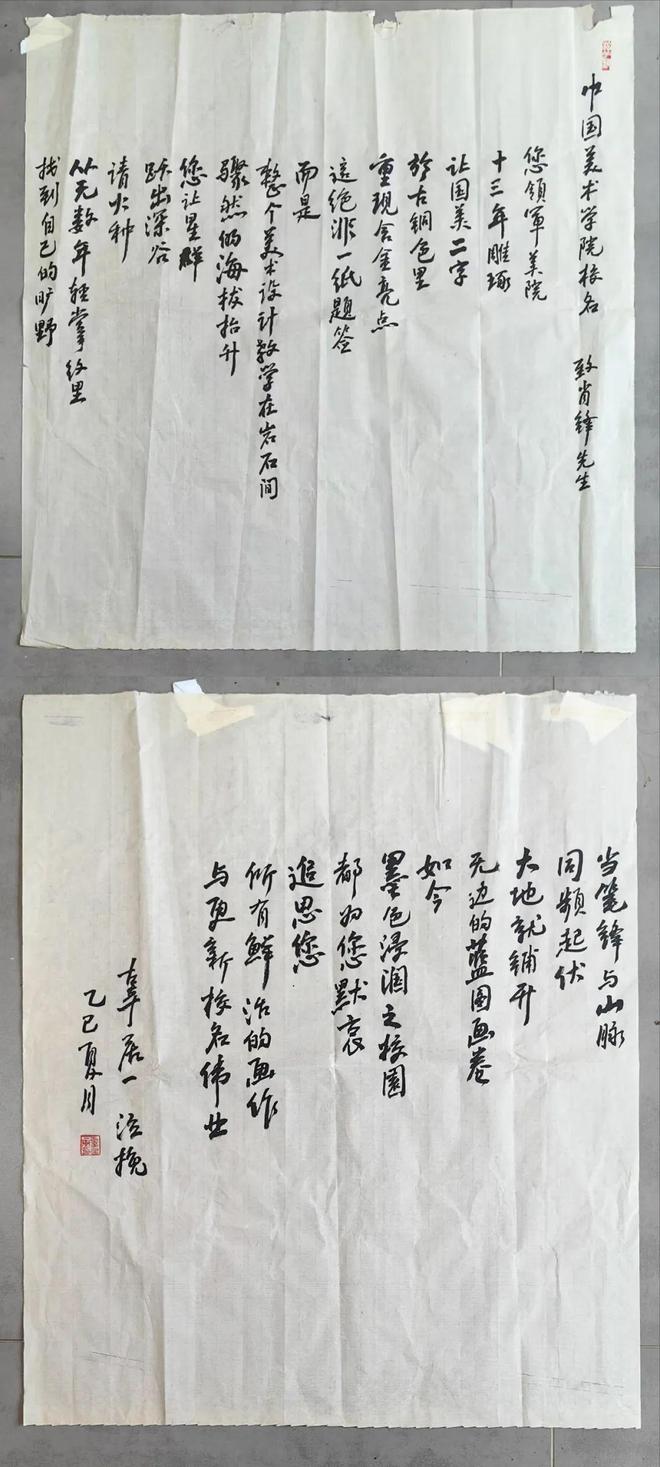 中国美术学院校名 致肖锋先生
您领军美院
十三年雕琢
让国美二字
於古铜色里
重现含金亮点
这绝非一纸题签
而是
整个美术设计教学在岩石间
骤然的海拔抬升
您让星群
跃出深谷
请火种
从无数年轻掌纹里
找到自己的旷野
当笔锋与山脉
同频起伏
大地就铺开
无边的蓝图画卷
如今
墨色浸润之校园
都为您默哀
追思您
所有鲜活的画作
与更新校名伟业
辜居一泣挽
乙巳夏月